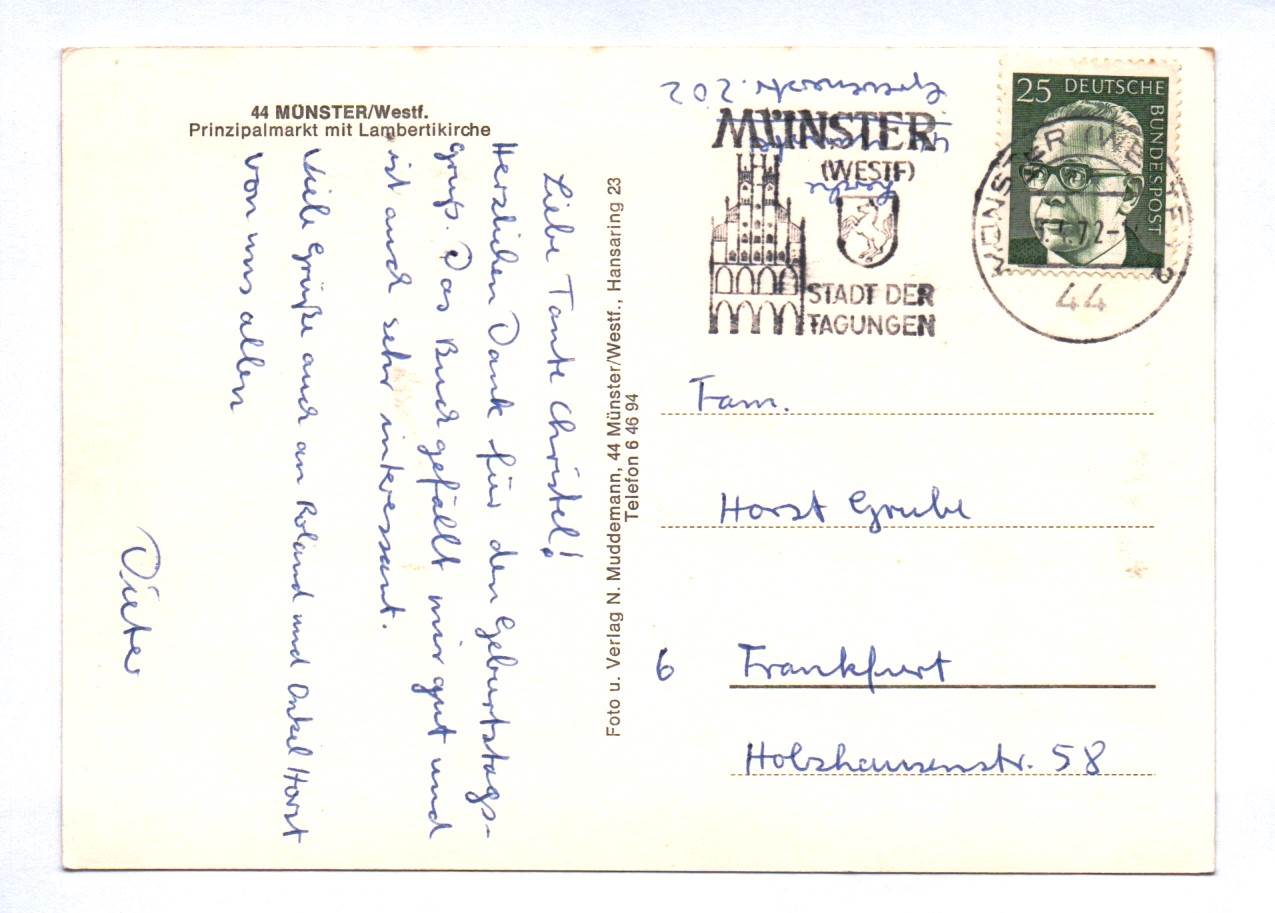 44 MÜNSTER/Westf.
Prinzipalmarkt mit Lambertikirche
Liebe Tante Christel!
Herzlichen Dank für den Geburtstags-
gruß. Das Buch gefällt mir gut und
ist auch sehr interessant.
Viele Grüße auch an Roland und Onkel Horst
von uns allen
Dieter
Foto u. Verlag N. Muddemann, 44 Münster/Westf., Hansaring 23
Telefon 6 46 94
202
MÜNSTER
(WESTF)
STADT DER
TAGUNGEN
25 DEUTSCHE
BUNDESPOST
MÜNSTER (WESTF)
72
44
Fam.
Horst Grube
6 Frankfurt
Holzhausenstr. 58